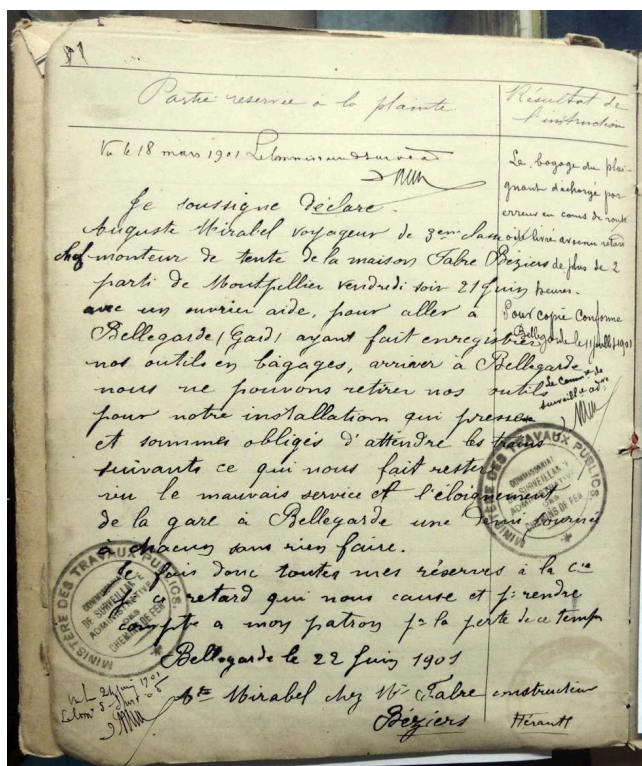 81
Partie réservée à la plainte
Résultat de
l'instruction
Vu le 18 mars 1901
Je soussigné déclare.
Auguste Mirabel voyageur de 3eme classe
chef monteur de tente de la maison Fabre Béziers
parti de Montpellier vendredi soir 21 Juin
avec un ouvrier aide, pour aller à
Bellegarde (Gard) ayant fait enregistrer
nos outils en bagages, arriver à Bellegarde
nous ne pouvons retirer nos outils
pour notre installation qui presse
et sommes obligés d'attendre les trains
suivants ce qui nous fait rester
vu le mauvais service et l'éloignement
de la gare à Bellegarde une demi journée
à chacun sans rien faire.
Je fais donc toutes mes réserves à la Cie
ce retard qui nous cause et pr rendre
compte a mon patron pr la perte de ce temps
Bellegarde le 22 Juin 1901
Mirabel chez Mr Fabre constructeur
Béziers Hérault
Le bagage du plai-
gnant déchargé par
erreur en cours de route
a été livré avec un retard
de plus de 2
heures.
Pour copie conforme
Bellegarde le 11 juillet 1901
Le Commre de
surveillce adve
MINISTÈRE DES TRAVAUX PUBLICS
COMMISSARIAT
DE SURVEILLANCE
ADMINISTRATIVE
DES
CHEMINS DE FER
MINISTÈRE DES TRAVAUX PUBLICS.
COMMISSARIAT
DE SURVEILLANCE
ADMINISTRATIVE
DES
CHEMINS DE FER
Vu L 24 juin 1901